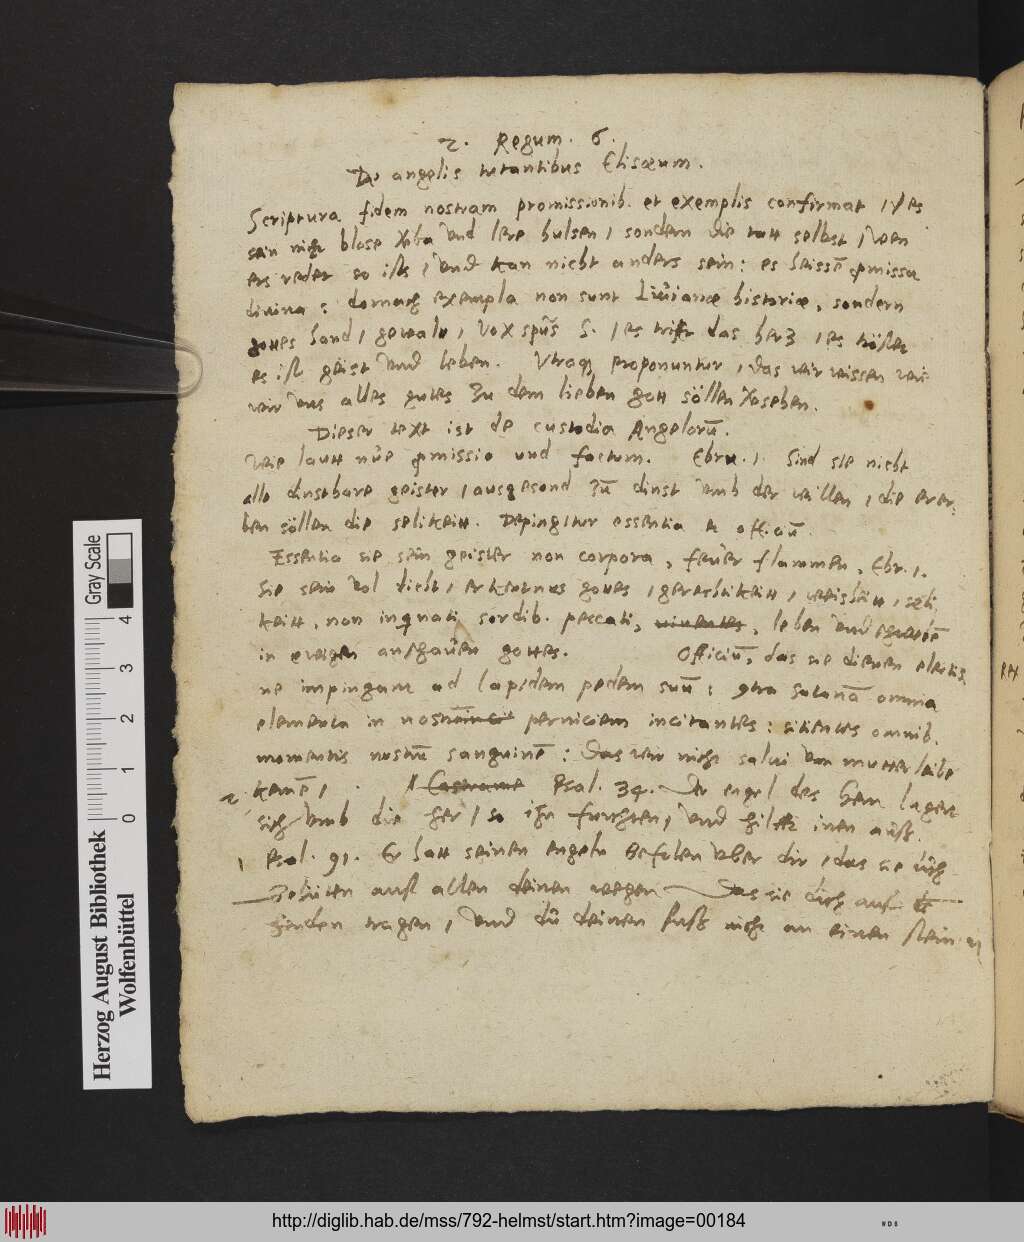 2. Regum. 6.
De angelis tutantibus Elisæum.
Scriptura fidem nostram promissionib. et exemplis confirmat / Nes
sein nicht blose und lere hulsen / sondern die tatt selbst / wen
ers redet so ists / und kan nicht anders sein: es heissē pmissa
divina: dornach exempla non sunt Liuianæ historiæ, sondern
gottes hand / gewalt / vox spūs S. / es trifft das hertz / es tröstet
es ist geist und leben. Utraq proponuntur / das wir wissen wes
wir uns alles gutes zu dem lieben gott söllen
Dieser text ist de custodia Angelorū.
Wie lautt nue pmissio und factum. Ebre. 1. Sind sie nicht
alle dinstbare geister / ausgesand zū dinst umb der willen / die erer
ben söllen die selikeitt. Depingitur essentia et officiū.
Essentia sie sein geister non corpora, feuer flammen, Ebr. 1.
Sie sein vol licht / erkentnus gottes / gerechtikeitt / weisheitt / seli
keitt, non inqnati sordib. peccati, viventes, leben und
in ewigen anschauen gottes. Officiū, das sie dienen electis
ne impingant ad lapidem pedem suū: contra satanā omnia
elementa in nostram perniciem incitantes: sitientes omnib.
momentis nostrū sanguinē: Das wir nicht salvi von mutter leibe
2 kemē /. Castrame Psal. 34. Der engel des hern lagert
sich umb die her / so ihn furchten / und hilfft inen auß.
1 Psal. 91. Er hatt seinen engeln befolen uber dir / das sie dich
behüten auff allen deinen wegen Das sie dich auff
henden tragen / und du deinen fuß nicht an einen stein
Herzog August Bibliothek
Wolfenbüttel
Gray Scale
0 1 2 3 4
http://diglib.hab.de/mss/792-helmst/start.htm?image=00184